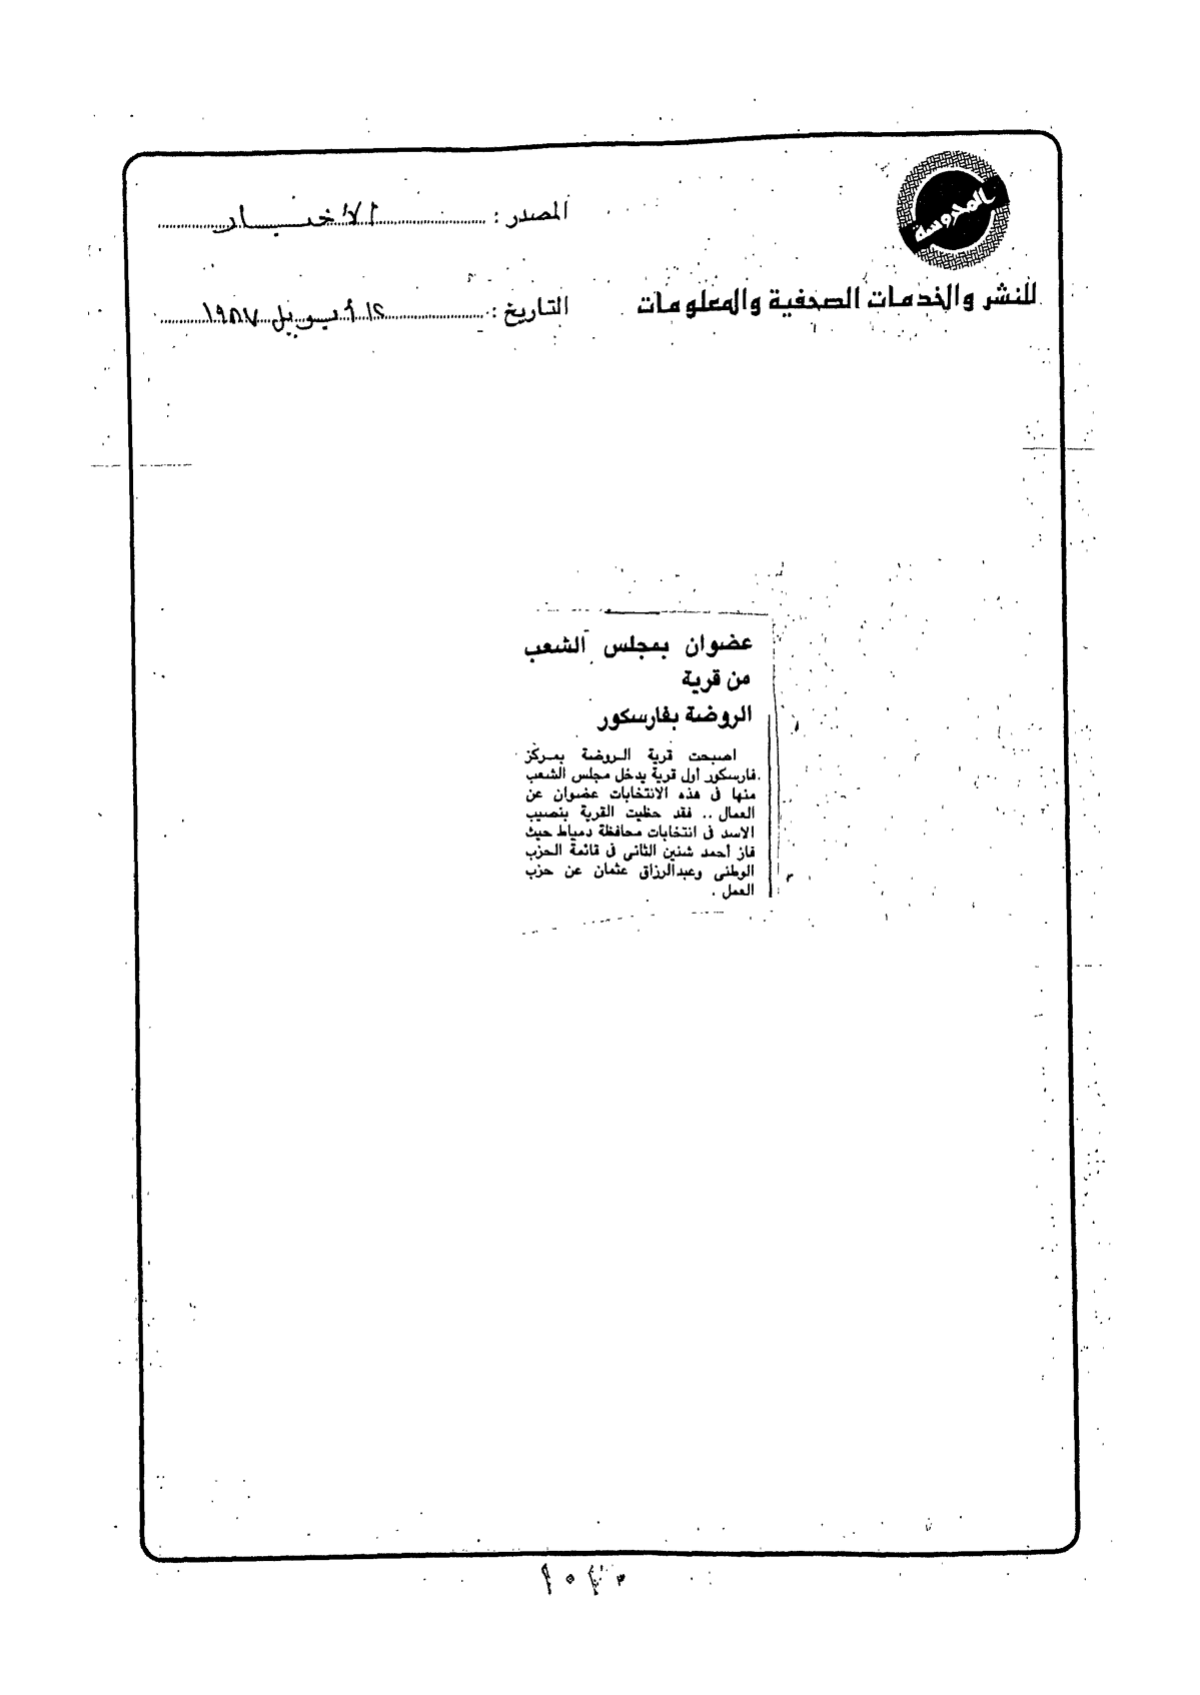 المحروسة
للنشر والخدمات الصحفية والمعلومات
المصدر : الأخبار
التاريخ : ١٢ أبريل ١٩٨٧
عضوان بمجلس الشعب
من قرية
الروضة بفارسكور
اصبحت قرية الروضة بمركز
فارسكور أول قرية يدخل مجلس الشعب
منها فى هذه الانتخابات عضوان عن
العمال .. فقد حظيت القرية بنصيب
الاسد فى انتخابات محافظة دمياط حيث
فاز أحمد شنين الثانى فى قائمة الحزب
الوطنى وعبدالرزاق عثمان عن حزب
العمل .